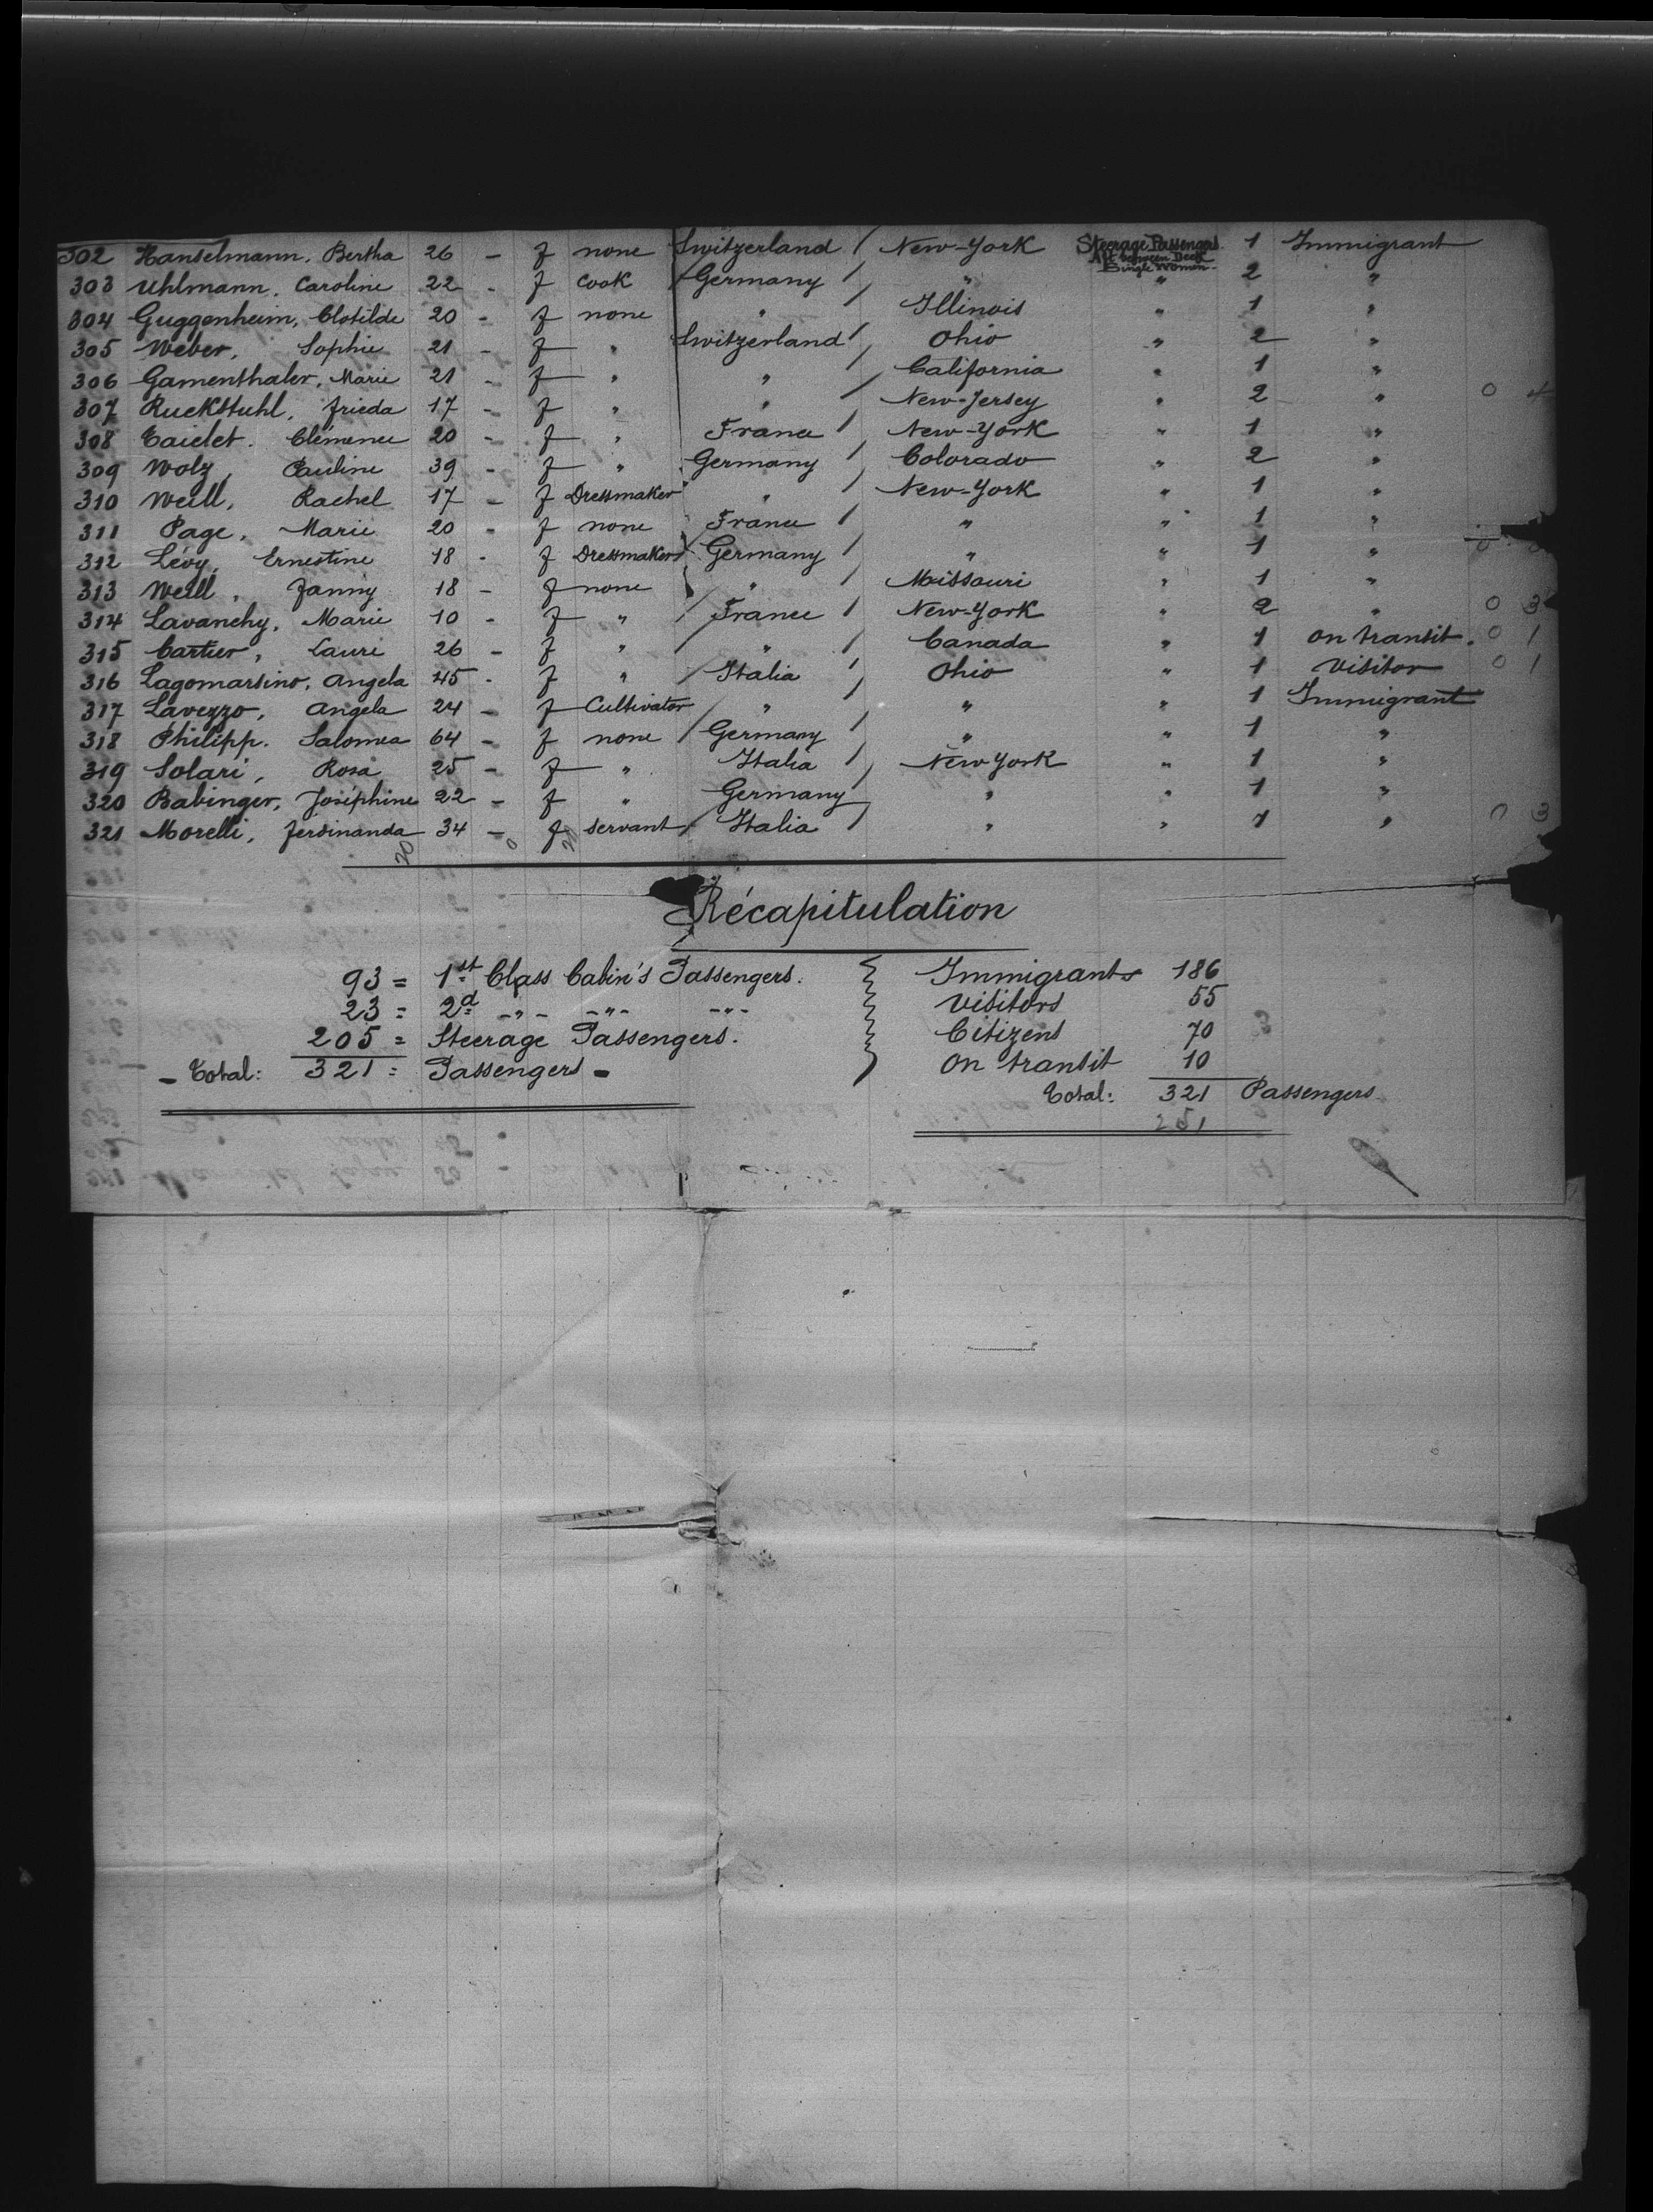 302 Hanselmann, Bertha 26 - f none Switzerland / New-York Steerage Passengers Aft between Deck Single Women. 1 Immigrant
303 Uhlmann, Caroline 22 - f Cook Germany / " " 2 "
304 Guggenheim, Clotilde 20 - f none " / Illinois " 1 "
305 Weber, Sophie 21 - f " Switzerland / Ohio " 2 "
306 Gamenthaler, Marie 21 - f " " / California " 1 "
307 Ruckstuhl, Frieda 17 - f " " / New-Jersey " 2 " 0 4
308 Taielet. Clémence 20 - f " France / New-York " 1 "
309 Wolz, Pauline 39 - f " Germany / Colorado " 2 "
310 Weill, Rachel 17 - f Dressmaker " / New-York " 1 "
311 Page, Marie 20 - f none France / " " 1 "
312 Lévy, Ernestine 18 - f Dressmaker Germany / " " 1 "
313 Weill, Fanny 18 - f none " / Missouri " 1 "
314 Lavanchy, Marie 10 - f " France / New-York " 2 " 0 3
315 Cartier, Laure 26 - f " " / Canada " 1 on transit. 0 1
316 Lagomarsino, Angela 45 - f " Italia / Ohio " 1 Visitor 0 1
317 Lavezzo, Angela 24 - f Cultivator " / " " 1 Immigrant
318 Philipp. Salomea 64 - f none Germany / " " 1 "
319 Solari, Rosa 25 - f " Italia / New York " 1 "
320 Babinger, Joséphine 22 - f " Germany / " " 1 "
321 Morelli, Ferdinanda 34 - f Servant Italia / " " 1 " 0 3
20 0 20
Récapitulation
93 = 1st Class Cabin's Passengers. Immigrants 186
23 = 2d -"- -"- -"- Visitors 55
205 = Steerage Passengers. Citizens 70
- Total: 321 = Passengers - On transit 10
Total: 321 Passengers
251